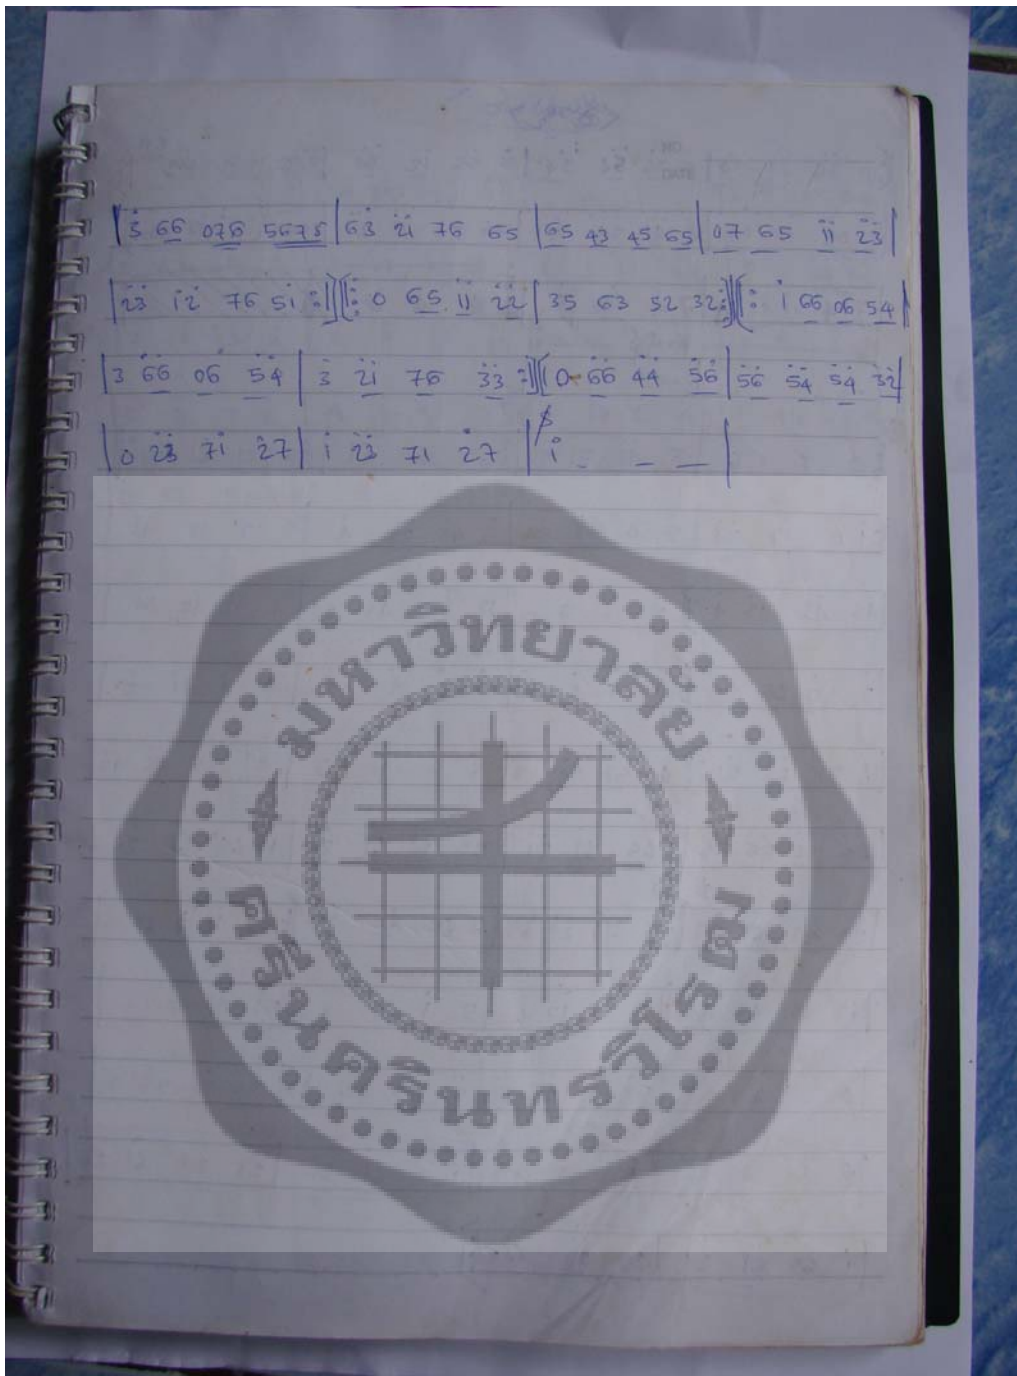 |3̇ 66 076 5675|63̇ 2̇1̇ 76 65|65 43 45 65|07 65 1̇1̇ 2̇3̇|
|2̇3̇ 1̇2̇ 76 51̇ :][: 0 65 1̇1̇ 2̇2̇|35 63 52 32:][: 1̇ 66 06 54|
|3 6̇6̇ 06̇ 5̇4̇|3̇ 2̇1̇ 76 3̇3̇ :][0 6̇6̇ 4̇4̇ 5̇6̇|5̇6̇ 5̇4̇ 5̇4̇ 3̇2̇|
|0 2̇3̇ 71̇ 2̇7|1̇ 2̇3̇ 71 2̇7|1̇ - - -|
มหาวิทยาลัย
ศรีนครินทรวิโรฒ